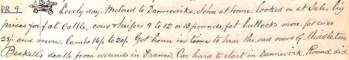 FR 9. Lovely day, Motored to Dannevirke, John at home. Looked in at Sale, big
prices for fat cattle, cows & heifers 8 to 12 or 18 pounds, fat bullocks more for over
23/- and ewes, lambs 16/- to 20/-. Got home in time to hear the sad news of Middleton
Beckett's death from wounds in France. Car hard to start in Dannevirk. Round did